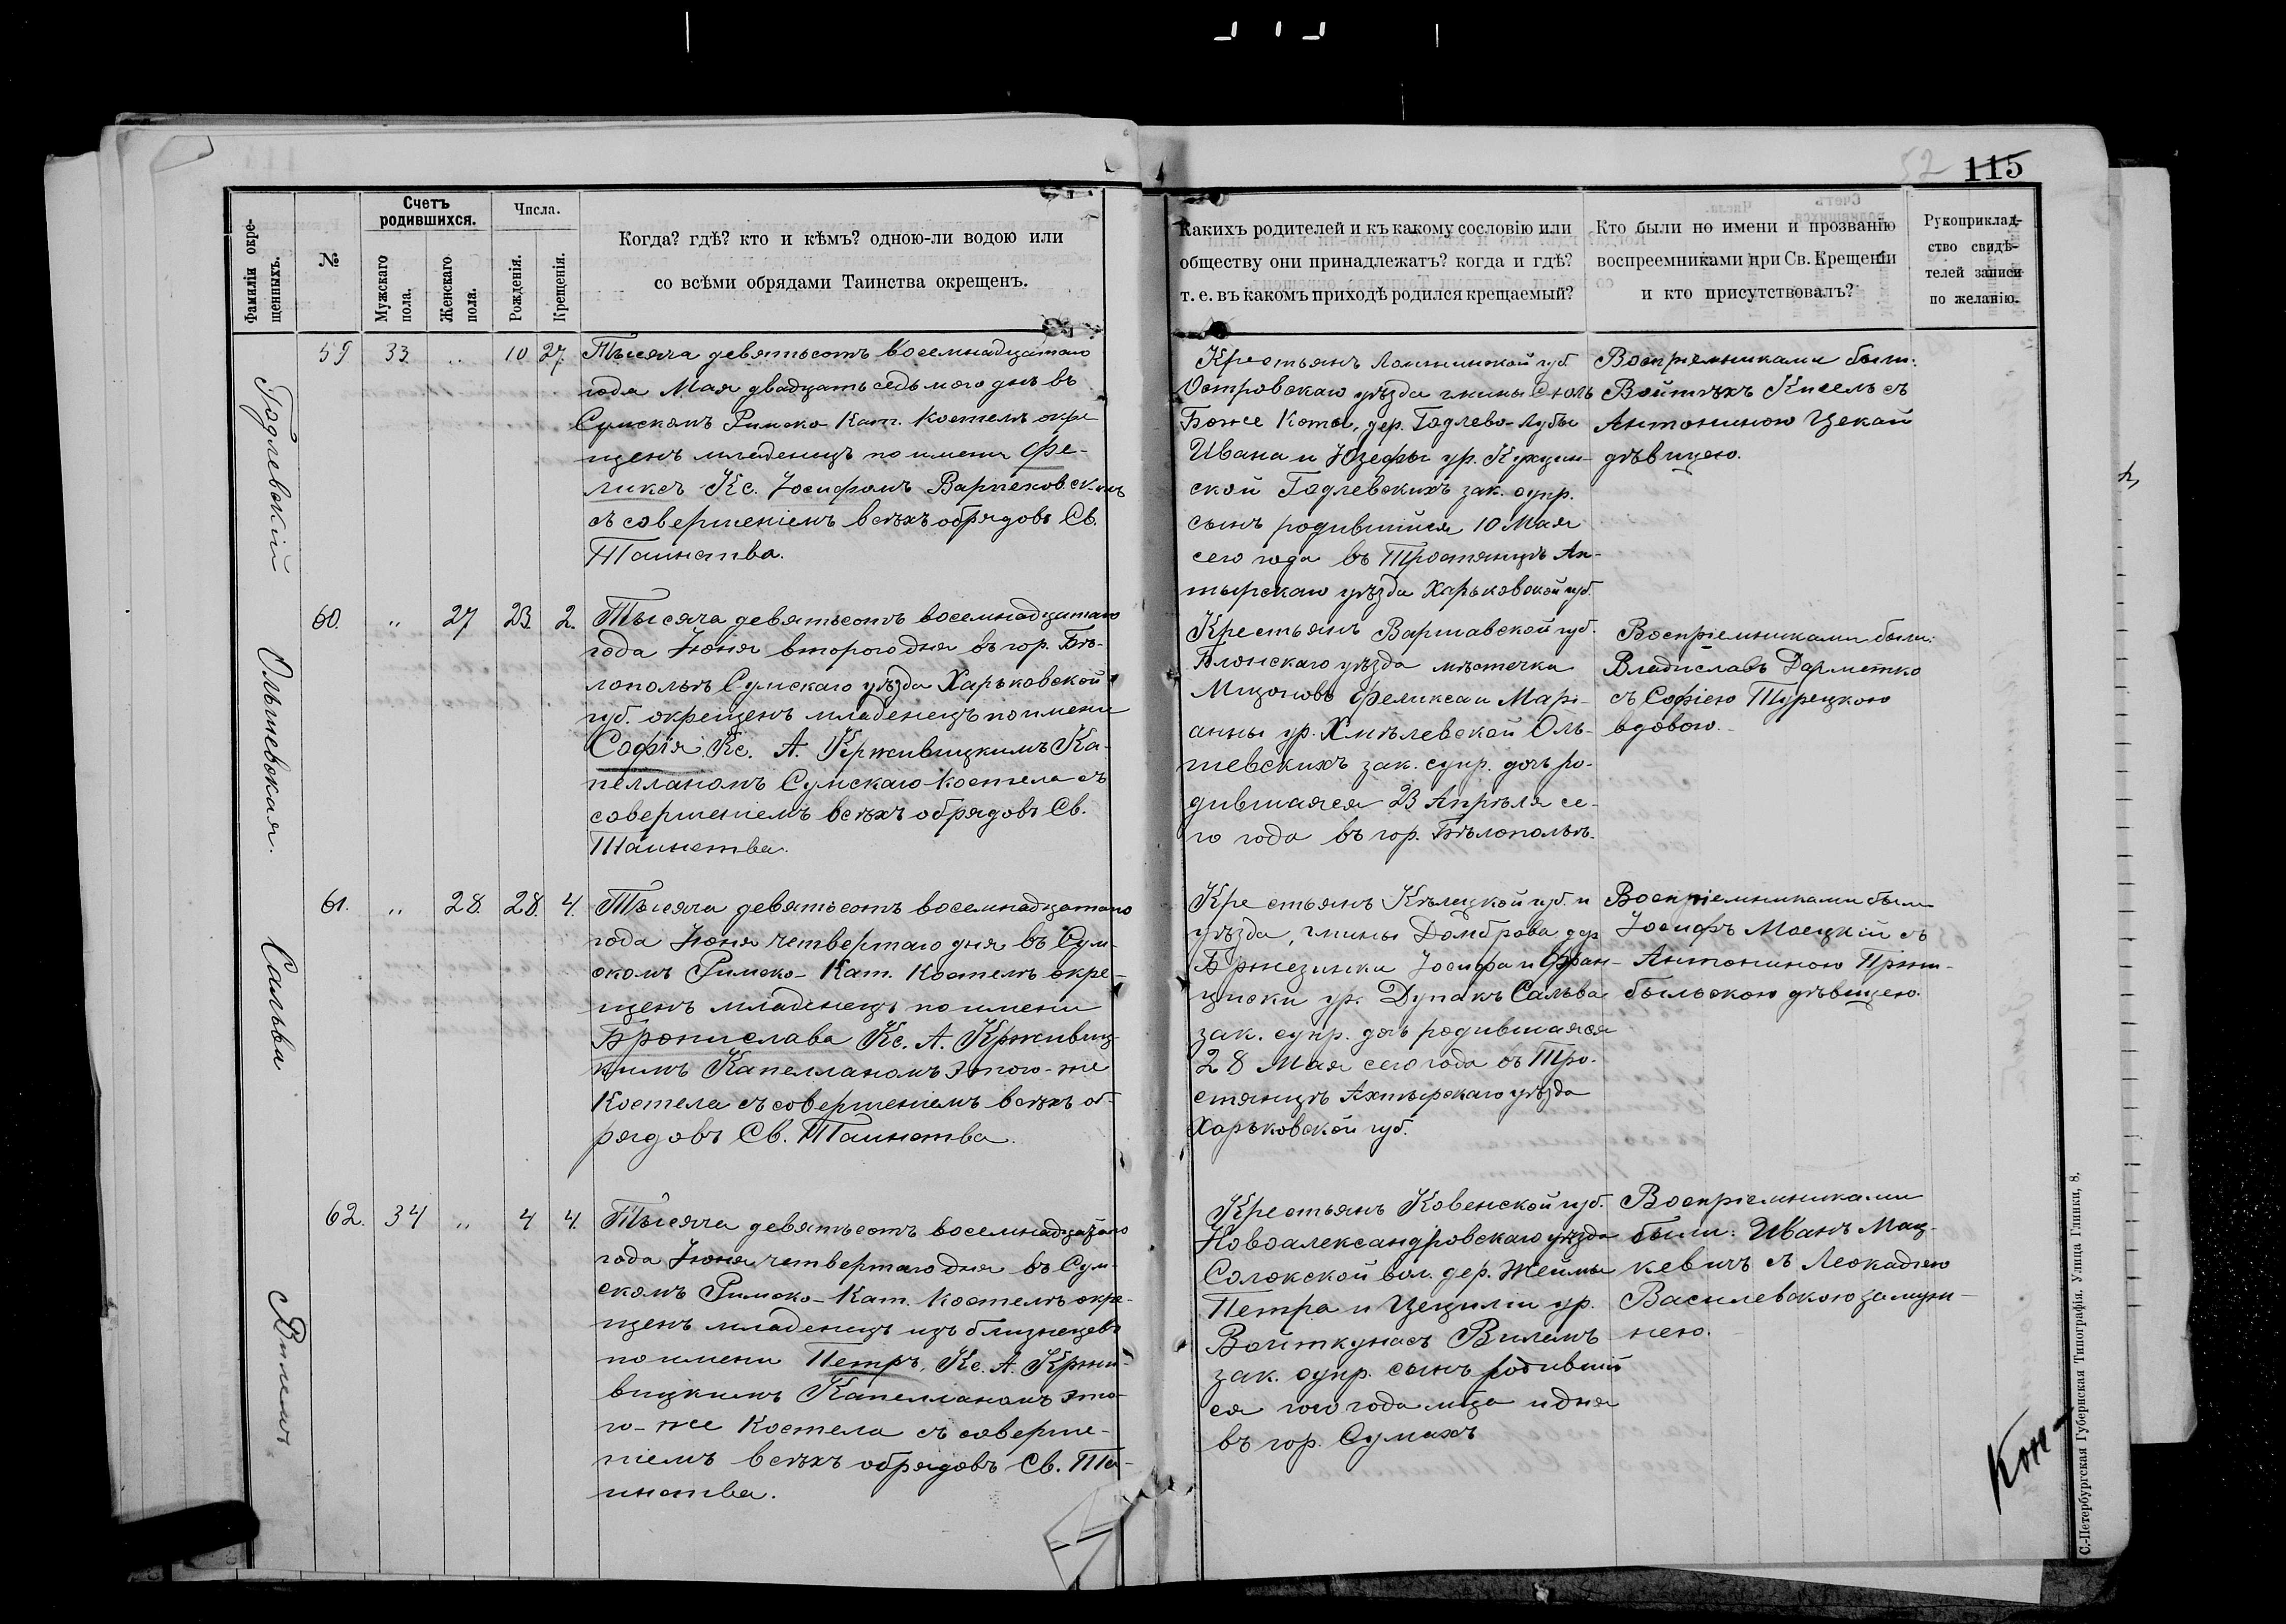 52 115
Фамиліи окре-
щенныхъ.
№
Счетъ
родившихся.
Мужскаго
пола.
Женскаго
пола.
Числа.
Рожденія.
Крещенія.
Когда? гдѣ? кто и кѣмъ? одною-ли водою или
со всѣми обрядами Таинства окрещенъ.
Какихъ родителей и къ какому сословію или
обществу они принадлежатъ? когда и гдѣ?
т. е. въ какомъ приходѣ родился крещаемый?
Кто были по имени и прозванію
воспреемниками при Св. Крещеніи
и кто присутствовалъ?
Рукоприклад-
ство свидѣ-
телей записи
по желанію.
Годлевскій
59 33 " 10 27.
Тысяча девятьсотъ восемнадцатаго
года Мая двадцать седьмого дня въ
Сумскомъ Римско-Кат. Костелѣ окре
щенъ младенецъ по имени Фе-
ликсъ Кс. Іосифомъ
съ совершеніемъ всѣхъ обрядовъ Св.
Таинства.
Крестьянъ Ломжинской губ.
Островскаго уѣзда гмины
Боже Коты, дер. Годлево-Лубы
Ивана и Юзефы ур.
ской Годлевскихъ зак. супр.
сынъ родившійся 10 Мая
сего года въ Тростянцѣ Ах-
тырскаго уѣзда Харьковской губ.
Воспріемниками были:
Войтѣхъ Кисель съ
Антониною Цекай
дѣвицею.
Ольшевская.
60. " 27 23. 2.
Тысяча девятьсотъ восемнадцатаго
года Іюня второго дня въ гор. Бѣ-
лопольѣ Сумскаго уѣзда Харьковской
губ. окрещенъ младенецъ по имени
Софія Кс. А. Крживицкимъ Ка-
пелланомъ Сумскаго Костела съ
совершеніемъ всѣхъ обрядовъ Св.
Таинства.
Крестьянъ Варшавской губ.
Блонскаго уѣзда мѣстечка
Мщоновъ Феликса и Марі-
анны ур. Хмѣлевской Оль-
шевскихъ зак. супр. дочь ро-
дившаяся 23 Апрѣля се-
го года въ гор. Бѣлопольѣ.
Воспріемниками были:
Владиславъ Дарметко
съ Софіею Турецкою
вдовою.
Сальва
61. " 28. 28. 4.
Тысяча девятьсотъ восемнадцатаго
года Іюня четвертаго дня въ Сум-
скомъ Римско-Кат. Костелѣ окре-
щенъ младенецъ по имени
Бронислава Кс. А. Крживиц-
кимъ Капелланомъ этого-же
Костела съ совершеніемъ всѣхъ об-
рядовъ Св. Таинства.
Крестьянъ Кѣлецкой губ. и
уѣзда, гмины Домброва дер.
Бржезинки Іосифа и Фран-
циски ур. Дупакъ Сальва
зак. супр. дочь родившаяся
28 Мая сего года въ Тро-
стянцѣ Ахтырскаго уѣзда
Харьковской губ.
Воспріемниками были
Іосифъ Моецкій съ
Антониною Прши-
быльскою дѣвицею.
Вилемъ
62. 34 " 4 4.
Тысяча девятьсотъ восемнадцатаго
года Іюня четвертаго дня въ Сум-
скомъ Римско-Кат. Костелѣ окре-
щенъ младенецъ изъ близнецовъ
по имени Петръ, Кс. А. Кржи-
вицкимъ Капелланомъ это-
го-же Костела съ соверше-
ніемъ всѣхъ обрядовъ Св. Та-
инства.
Крестьянъ Ковенской губ.
Новоалександровскаго уѣзда
Солокской вол. дер. Жеймы
Петра и Цециліи ур.
Войткунасъ Вилемъ
зак. супр. сынъ родившій
ся того года м-ца и дня
въ гор. Сумахъ
Воспріемниками
были: Иванъ Мац-
кевичъ съ Леокадіею
Василевскою замуж-
нею.
Кон-
С.-Петербургская Губернская Типографія. Улица Глинки, 8.